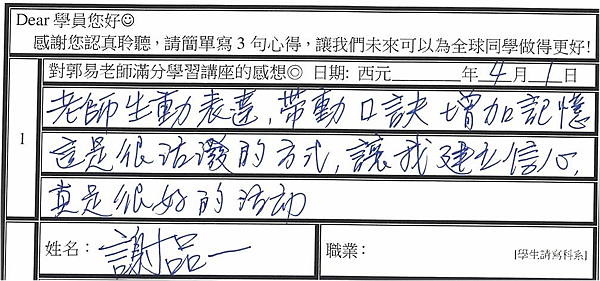 Dear 學員您好☺
感謝您認真聆聽，請簡單寫 3 句心得，讓我們未來可以為全球同學做得更好!
對郭易老師滿分學習講座的感想◎ 日期: 西元______年 4 月 1 日
1
老師生動表達，帶動口訣增加記憶
這是很活潑的方式，讓我建立信心，
真是很好的活動
姓名：謝品一
職業：
[學生請寫科系]